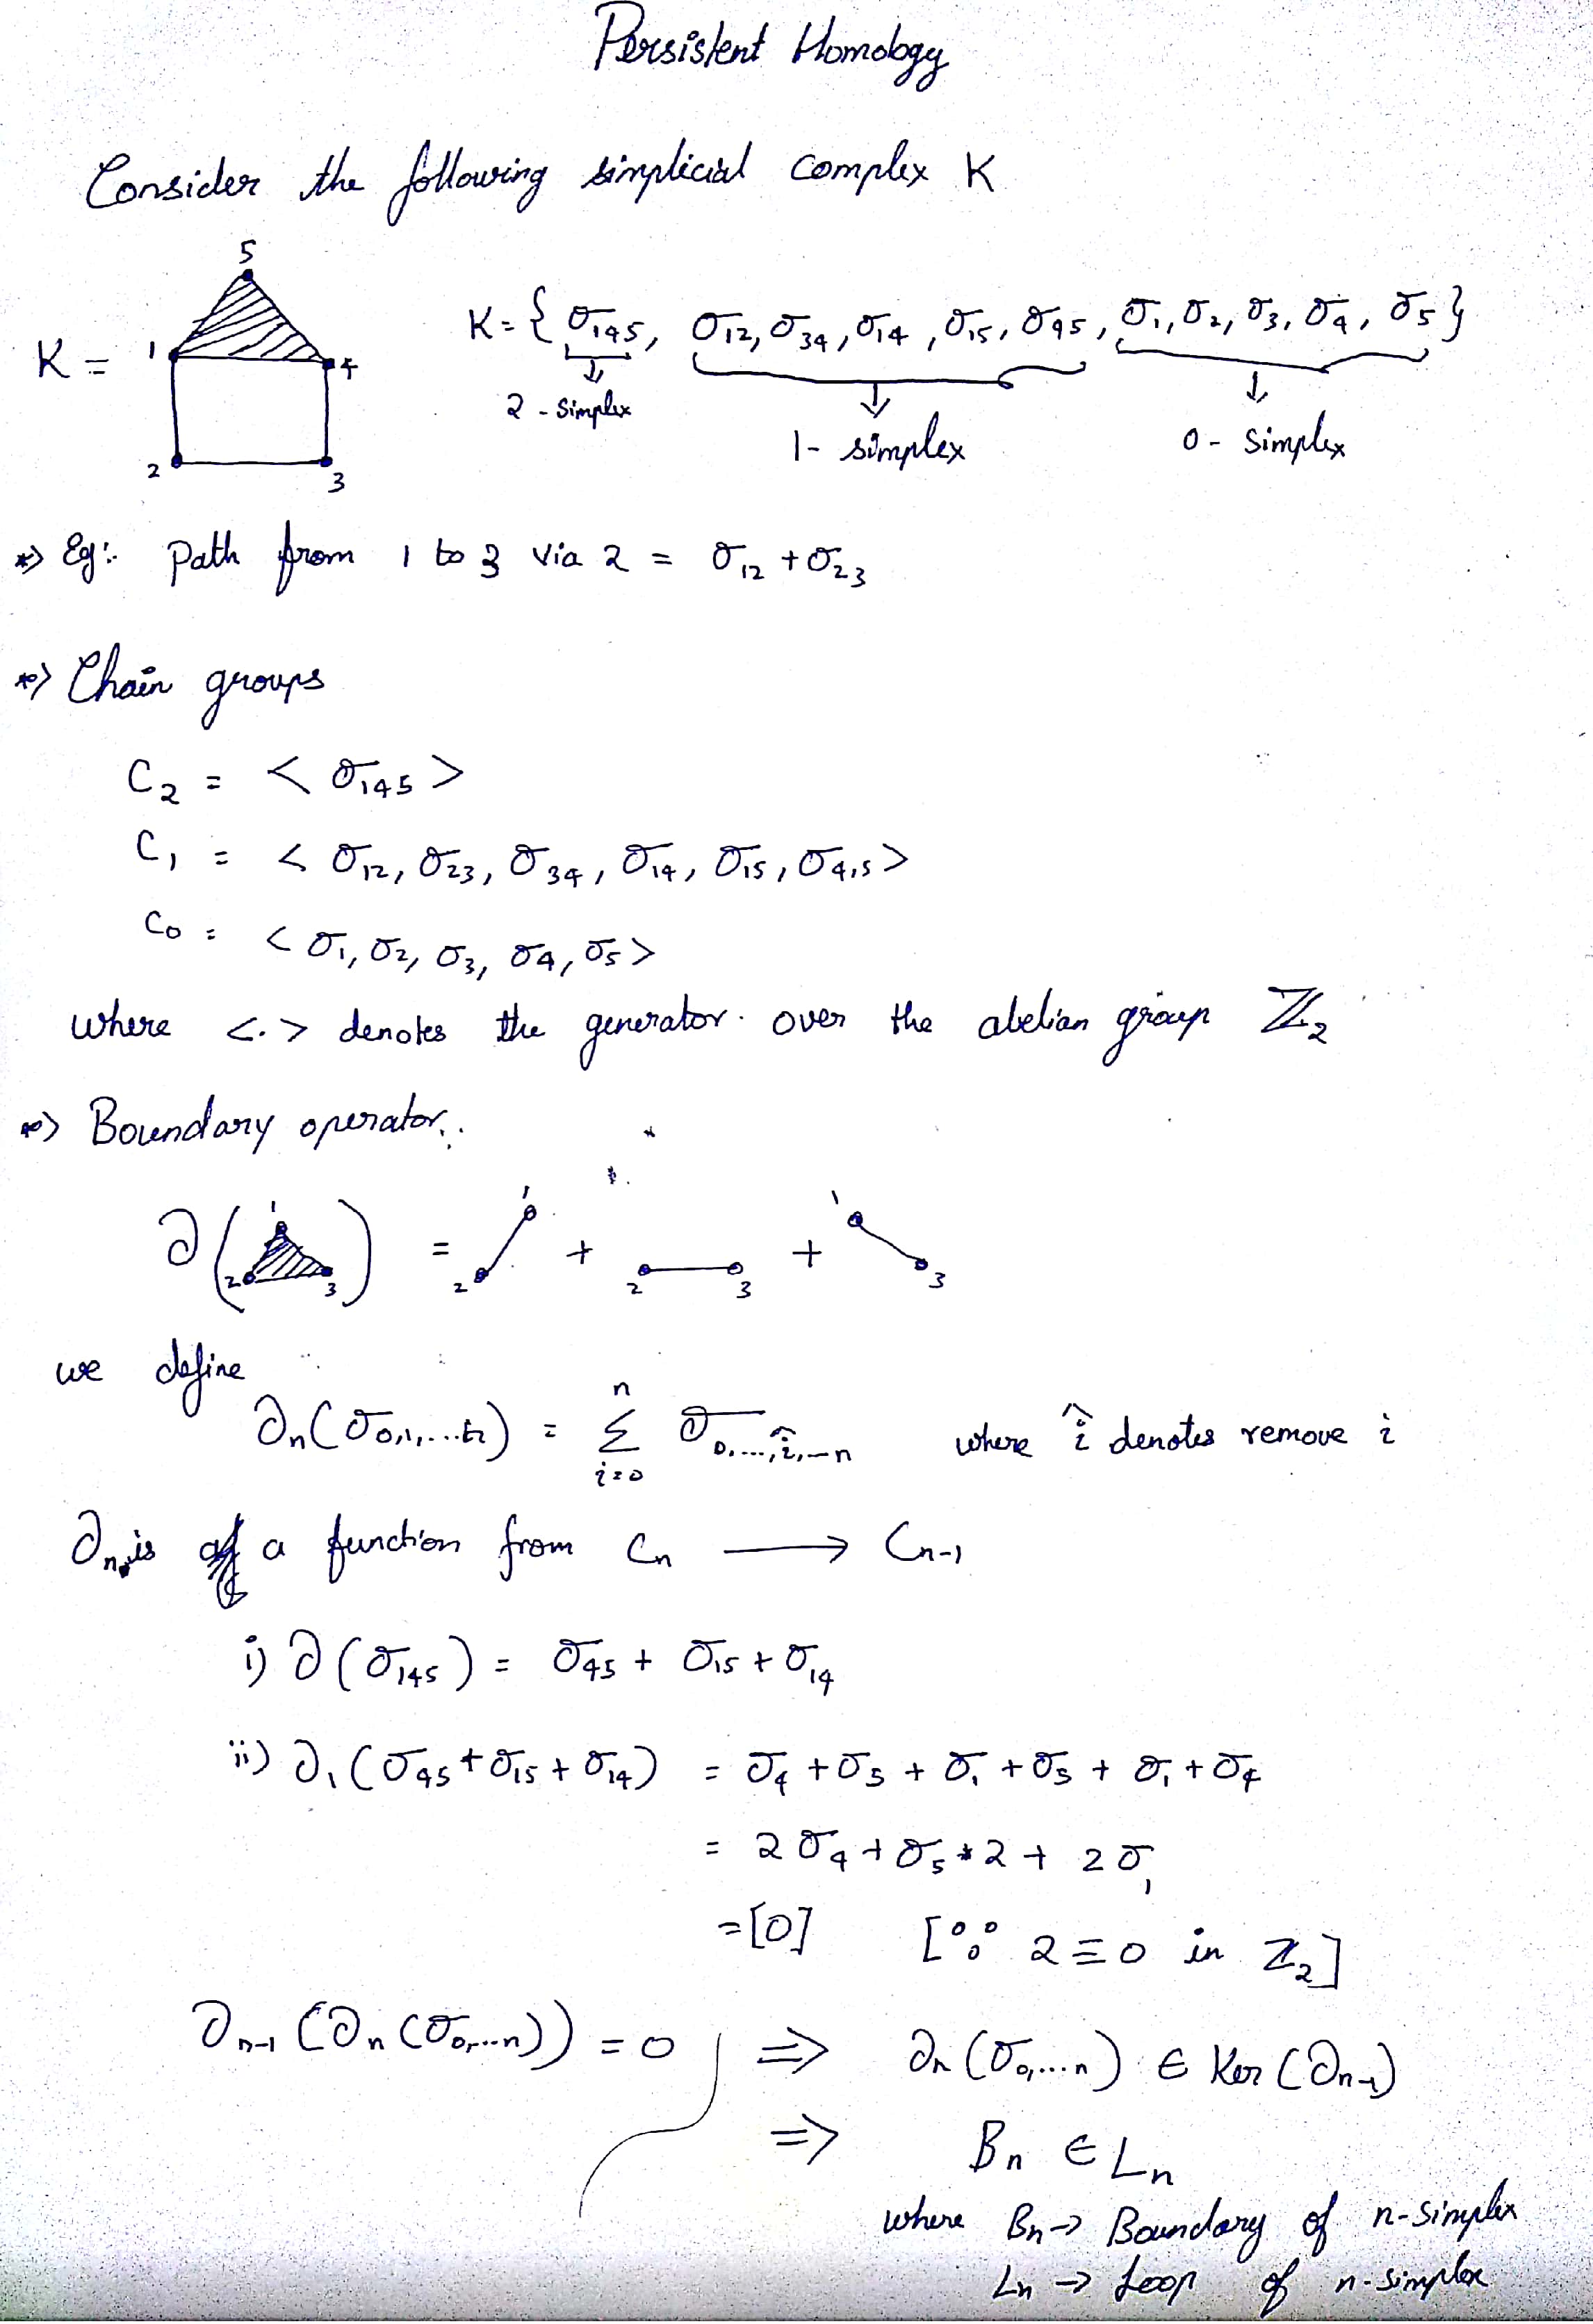 Persistent Homology
Consider the following simplicial complex K
K =
5
1
4
2
3
K = { σ₁₄₅, σ₁₂, σ₃₄, σ₁₄, σ₁₅, σ₄₅, σ₁, σ₂, σ₃, σ₄, σ₅ }
↓ ↓ ↓
2 - Simplex
1 - simplex
0 - simplex
*) Eg:- Path from 1 to 3 via 2 = σ₁₂ + σ₂₃
*) Chain groups
C₂ = < σ₁₄₅ >
C₁ = < σ₁₂, σ₂₃, σ₃₄, σ₁₄, σ₁₅, σ₄,₅ >
C₀ = < σ₁, σ₂, σ₃, σ₄, σ₅ >
where <.> denotes the generator over the abelian group ℤ₂
*) Boundary operator
∂( 1 2 3 ) = 1 2 + 2 3 + 1 3
we define
∂ₙ(σ₀,₁,...ₙ) = Σᵢ₌₀ⁿ σ₀,...,î,—n where î denotes remove i
∂ₙ is a function from Cₙ → Cₙ₋₁
i) ∂(σ₁₄₅) = σ₄₅ + σ₁₅ + σ₁₄
ii) ∂₁(σ₄₅ + σ₁₅ + σ₁₄) = σ₄ + σ₅ + σ₁ + σ₅ + σ₁ + σ₄
= 2σ₄ + σ₅*2 + 2σ₁
= [0] [∵ 2 ≡ 0 in ℤ₂]
∂ₙ₋₁(∂ₙ(σ₀,...ₙ)) = 0 ⇒ ∂ₙ(σ₀,...ₙ) ∈ Ker(∂ₙ₋₁)
⇒ Bₙ ∈ Lₙ
where Bₙ → Boundary of n-simplex
Lₙ → Loop of n-simplex